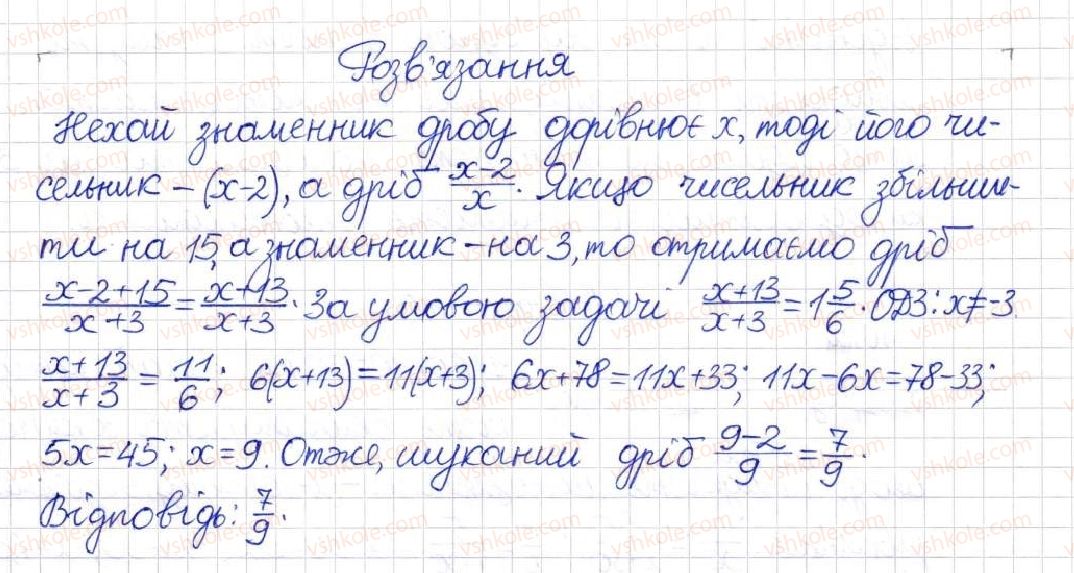 Розв'язання
Нехай знаменник дробу дорівнює x, тоді його чи-
сельник – (x-2), а дріб (x-2)/x. Якщо чисельник збільши-
ти на 15, а знаменник – на 3, то отримаємо дріб
(x-2+15)/(x+3) = (x+13)/(x+3). За умовою задачі (x+13)/(x+3) = 1 5/6. ОДЗ: x≠-3.
(x+13)/(x+3) = 11/6; 6(x+13)=11(x+3); 6x+78=11x+33; 11x-6x=78-33;
5x=45; x=9. Отже, шуканий дріб (9-2)/9 = 7/9.
Відповідь: 7/9.
vshkole.com